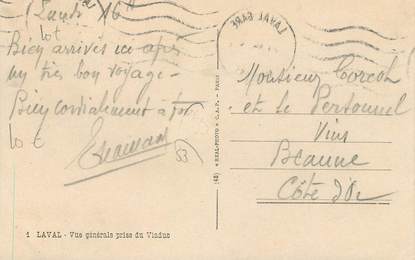 Lundi 16 H
Bien arrivés ici après
un très bon voyage -
Bien cordialement à
53
LAVAL GARE
Monsieur
et le Personnel
Vins
Beaune
Côte d'Or
(43) « REAL-PHOTO » C.A.P. - PARIS
1 LAVAL - Vue générale prise du Viaduc